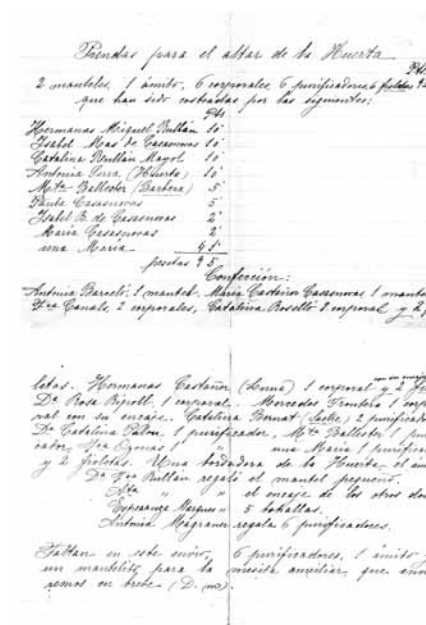 Prendas para el altar de la Huerta
Pts.
2 manteles, 1 ámito, 6 corporales, 6 purificadores, 6 fioletas 95
que han sido costeadas por las siguientes:
Pts
Hermanas Miquel Bullán 10'
Isabel Mas de Casasnovas 10'
Catalina Bullán Mayol 10'
Antonia Serra (Huerta) 10'
Mª Ballester (Barbera) 5'
Paula Casasnovas 5'
Isabel B. de Casasnovas 2'
María Casasnovas 2'
una María 41'
pesetas 95
Confección:
Antonia Barceló: 1 mantel. María Castañer Casasnovas 1 mantel
Fca Canals, 2 corporales, Catalina Roselló 1 corporal y 2
letas. Hermanas Castañer (Luna) 1 corporal y 2
Dª Rosa Ripoll, 1 corporal. Mercedes Frontera 1
ral con su encaje. Catalina Bernat 2 purificado
Dª Catalina Palou, 1 purificador, Mª Ballester 1
cador, 1 una María 1 purifica
y 2 fioletas. Una bordadora de la Huerta, el
Dª Fca Bullán regaló el mantel pequeño.
" " el encaje de los otros dos
Esperanza " 5 tohallas.
Antonia Magraner regala 6 purificadores.
Faltan en este envío, 6 purificadores, 1 ámito
un mantelito para la mesita auxiliar, que
remos en breve (D. m.)